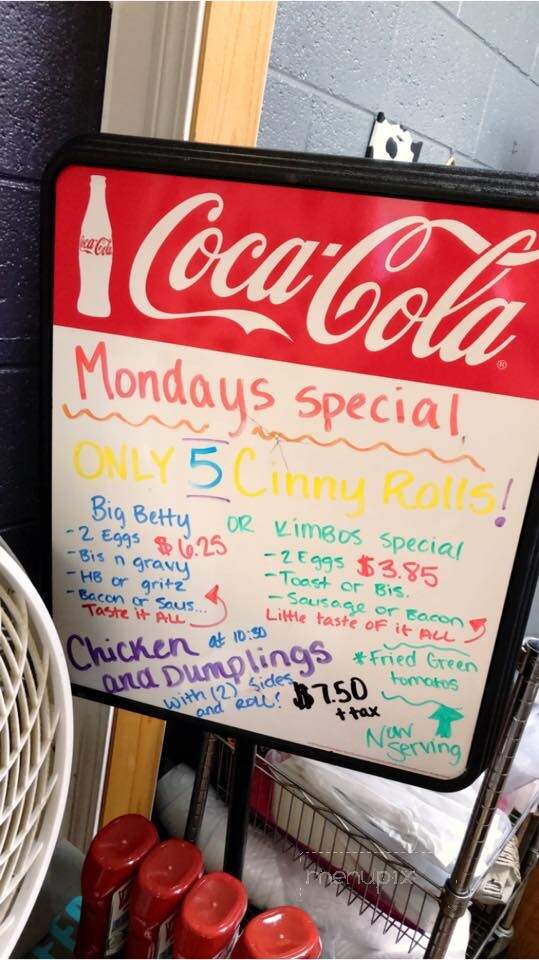 Coca-Cola
Coca-Cola®
Mondays Special
ONLY 5 Cinny Rolls!
Big Betty
- 2 Eggs $6.25
- Bis n gravy
- HB or gritz
- Bacon or Saus...
Taste it ALL
OR Kimbos Special
- 2 Eggs $3.85
- Toast or Bis.
- Sausage or Bacon
Little taste of it ALL
Chicken at 10:30
and Dumplings
with (2) sides
and Roll! $7.50
+ tax
*Fried Green
tomatos
Now
Serving
menupix